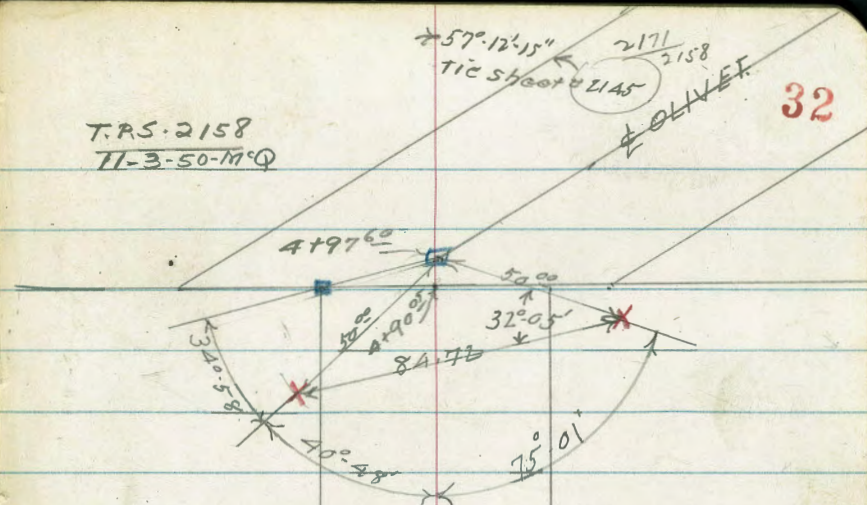 ∠57°-12'-15"
Tie sheet = 2145
2171/2158
℄ OLIVET.
32
T.P.S. 2158
11-3-50-McQ
4+97⁶⁰
50⁰⁰
50⁰⁰
4+90⁰⁵
32°-05'
84.72
34°-58'
40°-48'
75°-01'